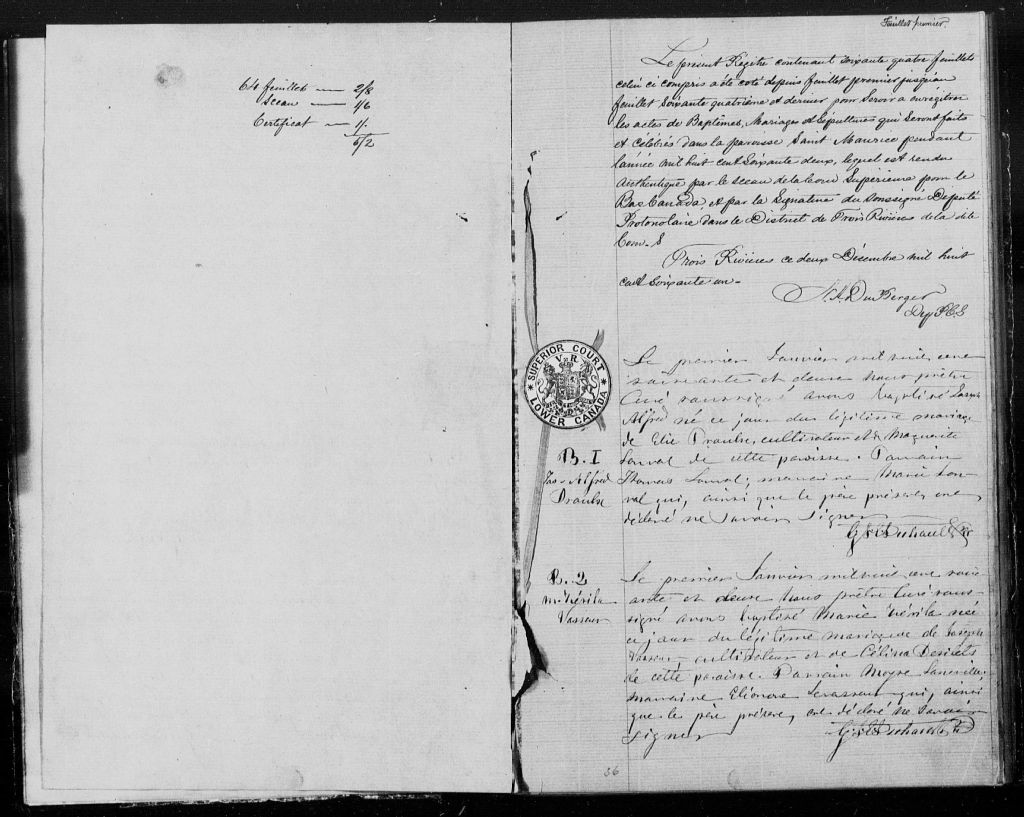 64 feuillets — 2/8
Sceau — 1/6
Certificat — 1/-
5/2
Feuillet premier.
Le présent Régitre contenant soixante quatre feuillets
celui ci compris a été coté depuis feuillet premier jusqu'au
feuillet soixante quatrième et dernier pour servir a enrégitrer
les actes de Baptêmes, Mariages et Sépultures qui seront faits
et célébrés dans la paroisse Saint Maurice pendant
l'année mil huit cent soixante deux, lequel est rendu
authentique par le sceau de la Cour Supérieure pour le
Bas Canada, et par la Signature du soussigné Député
Protonotaire dans le District de Trois Rivières de la dite
Cour. S
Trois Rivières ce deux Désembre mil huit
cent soixante un.
Dep P.C.S
SUPERIOR COURT
V R
LOWER CANADA
B. I
Jos-Alfred
Le premier Janvier mil huit cent
soixante et deux nous prêtre
Curé soussigné avons baptisé Joseph
Alfred né ce jour du légitime mariage
de Elie cultivateur et de Marguerite
de cette paroisse. Parrain
Thomas marraine Marie
qui, ainsi que le père présent, ont
déclaré ne savoir signer
B. 2
Vasseur
Le premier Janvier mil huit cent soix-
ante et deux nous prêtre Curé sous-
signé avons baptisé Marie née
ce jour du légitime mariage de Joseph
Vasseur cultivateur et de Célina Desilets
de cette paroisse. Parrain Moyse
marraine Eléonore Levasseur qui, ainsi
que le père présent, ont déclaré ne savoir
signer
36